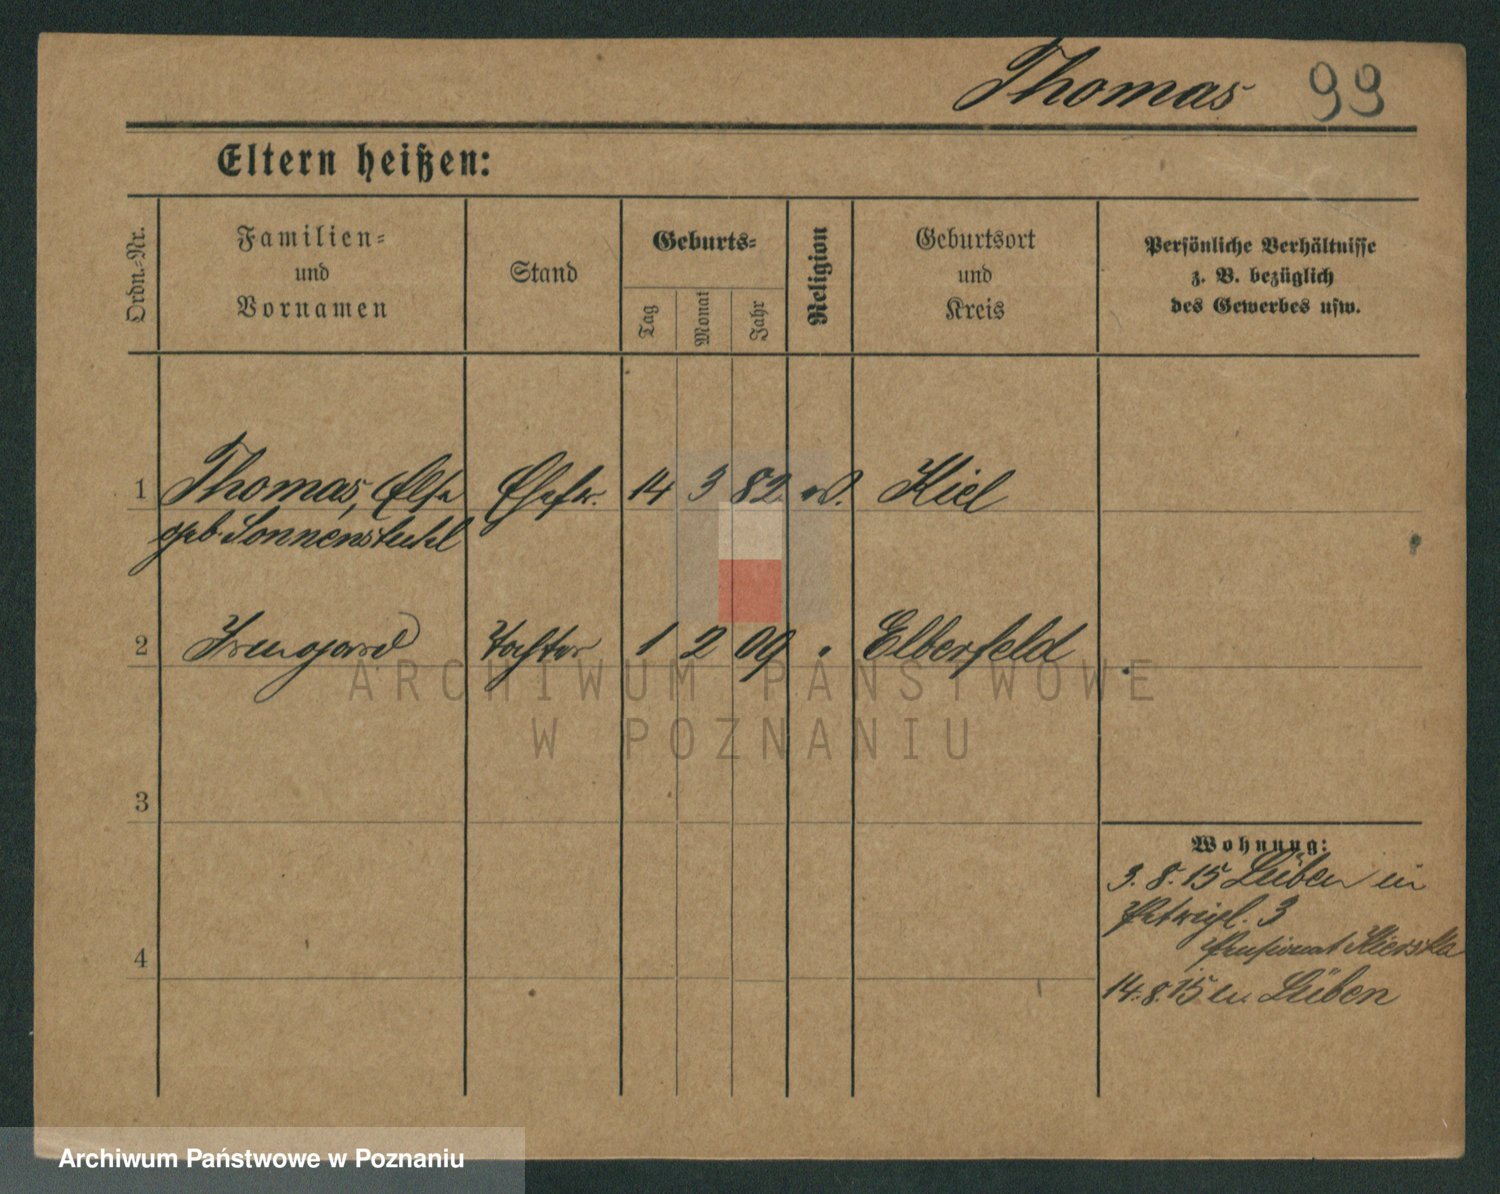 Thomas 99
Eltern heißen:
Ordn.-Nr.
Familien-
und
Vornamen
Stand
Geburts-
Tag
Monat
Jahr
Religion
Geburtsort
und
Kreis
Persönliche Verhältnisse
z. B. bezüglich
des Gewerbes usw.
1 Thomas, Else Ehefr. 14 3 82 ev. Kiel
geb Sonnenstuhl
2 Irmgard Tochter 1 2 09 " Elberfeld
3
4
Wohnung:
3. 8. 15 Lüben in
3
Pensionat Kierska
14. 8. 15 n. Lüben
ARCHIWUM PAŃSTWOWE
W POZNANIU
Archiwum Państwowe w Poznaniu